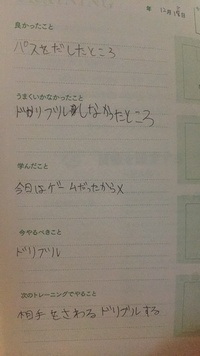 年 12月18日
良かったこと
パスをだしたところ
うまくいかなかったこと
ドリブルしなかったところ
学んだこと
今日はゲームだったから×
今やるべきこと
ドリブル
次のトレーニングでやること
相手をさわる ドリブルする